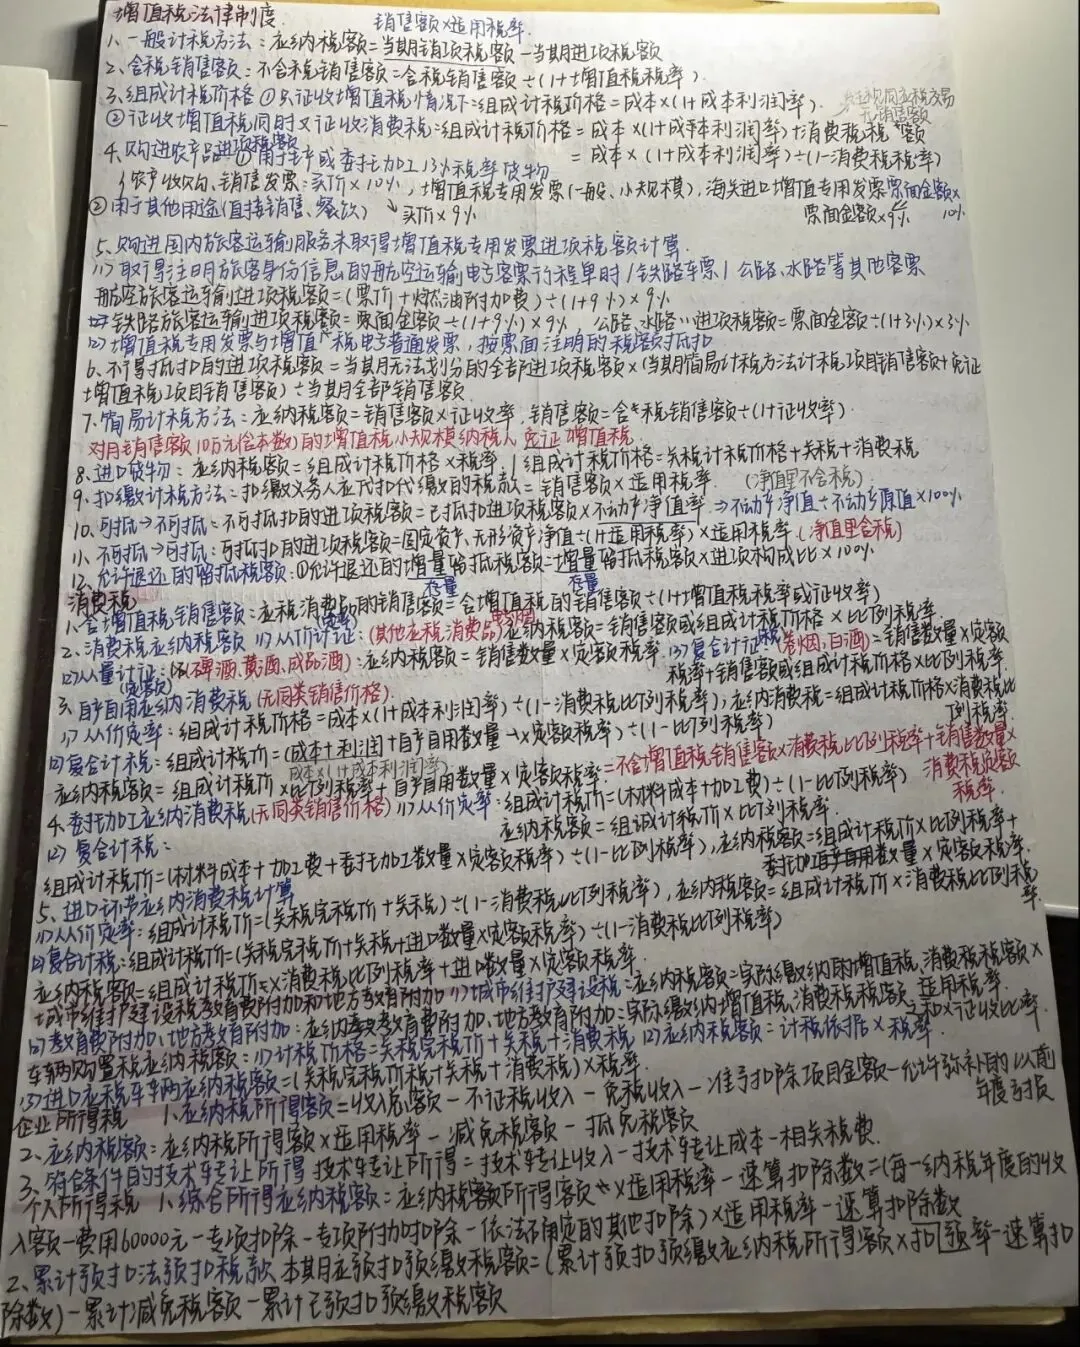 增值税法律制度
销售额×适用税率
1、一般计税方法：应纳税额=当期销项税额-当期进项税额
2、含税销售额：不含税销售额=含税销售额÷(1+增值税税率)
3、组成计税价格①只征收增值税情况下：组成计税价格=成本×(1+成本利润率)
视同应税交易
无销售额
②征收增值税同时又征收消费税：组成计税价格=成本×(1+成本利润率)+消费税税额
=成本×(1+成本利润率)÷(1-消费税税率)
4、购进农产品进项税额①用于生产或委托加工13%税率货物
农产收购、销售发票：买价×10%，增值税专用发票(一般、小规模)，海关进口增值专用发票票面金额×
10%
②用于其他用途(直接销售、餐饮) ↘买价×9%
票面金额×9%
5、购进国内旅客运输服务未取得增值税专用发票进项税额计算
(1)取得注明旅客身份信息的航空运输电子客票行程单时/铁路车票/公路、水路等其他客票
航空旅客运输进项税额=(票价+燃油附加费)÷(1+9%)×9%
铁路旅客运输进项税额=票面金额÷(1+9%)×9%，公路、水路..进项税额=票面金额÷(1+3%)×3%
(2)增值税专用发票与增值税电子普通发票，按票面注明的税额抵扣
6、不得抵扣的进项税额=当期无法划分的全部进项税额×(当期简易计税方法计税项目销售额+免征
增值税项目销售额)÷当期全部销售额
7、简易计税方法：应纳税额=销售额×征收率，销售额=含税销售额÷(1+征收率)
对月销售额10万元(含本数)的增值税小规模纳税人免征增值税
8、进口货物：应纳税额=组成计税价格×税率，组成计税价格=关税计税价格+关税+消费税
9、扣缴计税方法：扣缴义务人应代扣代缴的税款=销售额×适用税率
(净值里不含税)
10、可抵→不可抵：不可抵扣的进项税额=已抵扣进项税额×不动产净值率⇒不动产净值÷不动产原值×100%
11、不可抵→可抵：可抵扣的进项税额=固定资产、无形资产净值÷(1+适用税率)×适用税率(净值里含税)
12、允许退还的留抵税额：①允许退还的增量留抵税额=增量留抵税额×进项构成比×100%
存量
存量
消费税
1、含增值税销售额：应税消费品的销售额=含增值税的销售额÷(1+增值税税率或征收率)
2、消费税应纳税额(1)从价计征：(其他应税消费品)应纳税额=销售额或组成计税价格×比例税率
(2)从量计征：(啤酒、黄酒、成品油)：应纳税额=销售数量×定额税率 (3)复合计征(卷烟、白酒)=销售数量×定额
税率+销售额或组成计税价格×比例税率
(定额)
3、自产自用应纳消费税(无同类销售价格)
(1)从价定率：组成计税价格=成本×(1+成本利润率)÷(1-消费税比例税率)，应纳消费税=组成计税价格×消费税比
例税率
(2)复合计税：组成计税价=(成本+利润+自产自用数量×定额税率)÷(1-比例税率)
成本×(1+成本利润率)
应纳税额=组成计税价×比例税率+自产自用数量×定额税率=不含增值税销售额×消费税比例税率+销售数量×
消费税定额
税率
4、委托加工应纳消费税(无同类销售价格)(1)从价定率：组成计税价=(材料成本+加工费)÷(1-比例税率)
应纳税额=组成计税价×比例税率
(2)复合计税：
组成计税价=(材料成本+加工费+委托加工数量×定额税率)÷(1-比例税率)，应纳税额=组成计税价×比例税率+
委托加工数量×定额税率
5、进口环节应纳消费税计算
(1)从价定率：组成计税价=(关税完税价+关税)÷(1-消费税比例税率)，应纳税额=组成计税价×消费税比例税
率
(2)复合计税：组成计税价=(关税完税价+关税+进口数量×定额税率)÷(1-消费税比例税率)
应纳税额=组成计税价×消费税比例税率+进口数量×定额税率
城市维护建设税教育费附加和地方教育附加 (1)城市维护建设税：应纳税额=实际缴纳的增值税、消费税税额×
适用税率
(2)教育费附加、地方教育附加：应纳教育费附加、地方教育附加=实际缴纳增值税、消费税税额之和×征收比率
车辆购置税应纳税额：(1)计税价格=关税完税价+关税+消费税 (2)应纳税额=计税依据×税率
(3)进口应税车辆应纳税额=(关税完税价格+关税+消费税)×税率
企业所得税 1、应纳税所得额=收入总额-不征税收入-免税收入-准予扣除项目金额-允许弥补的以前
年度亏损
2、应纳税额：应纳税所得额×适用税率-减免税额-抵免税额
3、符合条件的技术转让所得 技术转让所得=技术转让收入-技术转让成本-相关税费
个人所得税 1、综合所得应纳税额=应纳税额所得额×适用税率-速算扣除数=(每一纳税年度的收
入额-费用60000元-专项扣除-专项附加扣除-依法确定的其他扣除)×适用税率-速算扣除数
2、累计预扣法预扣税款 本期应预扣预缴税额=(累计预扣预缴应纳税所得额×预扣率-速算扣
除数)-累计减免税额-累计已预扣预缴税额